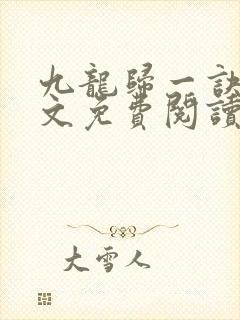 九龍歸一訣
文免費閱讀
大雪人